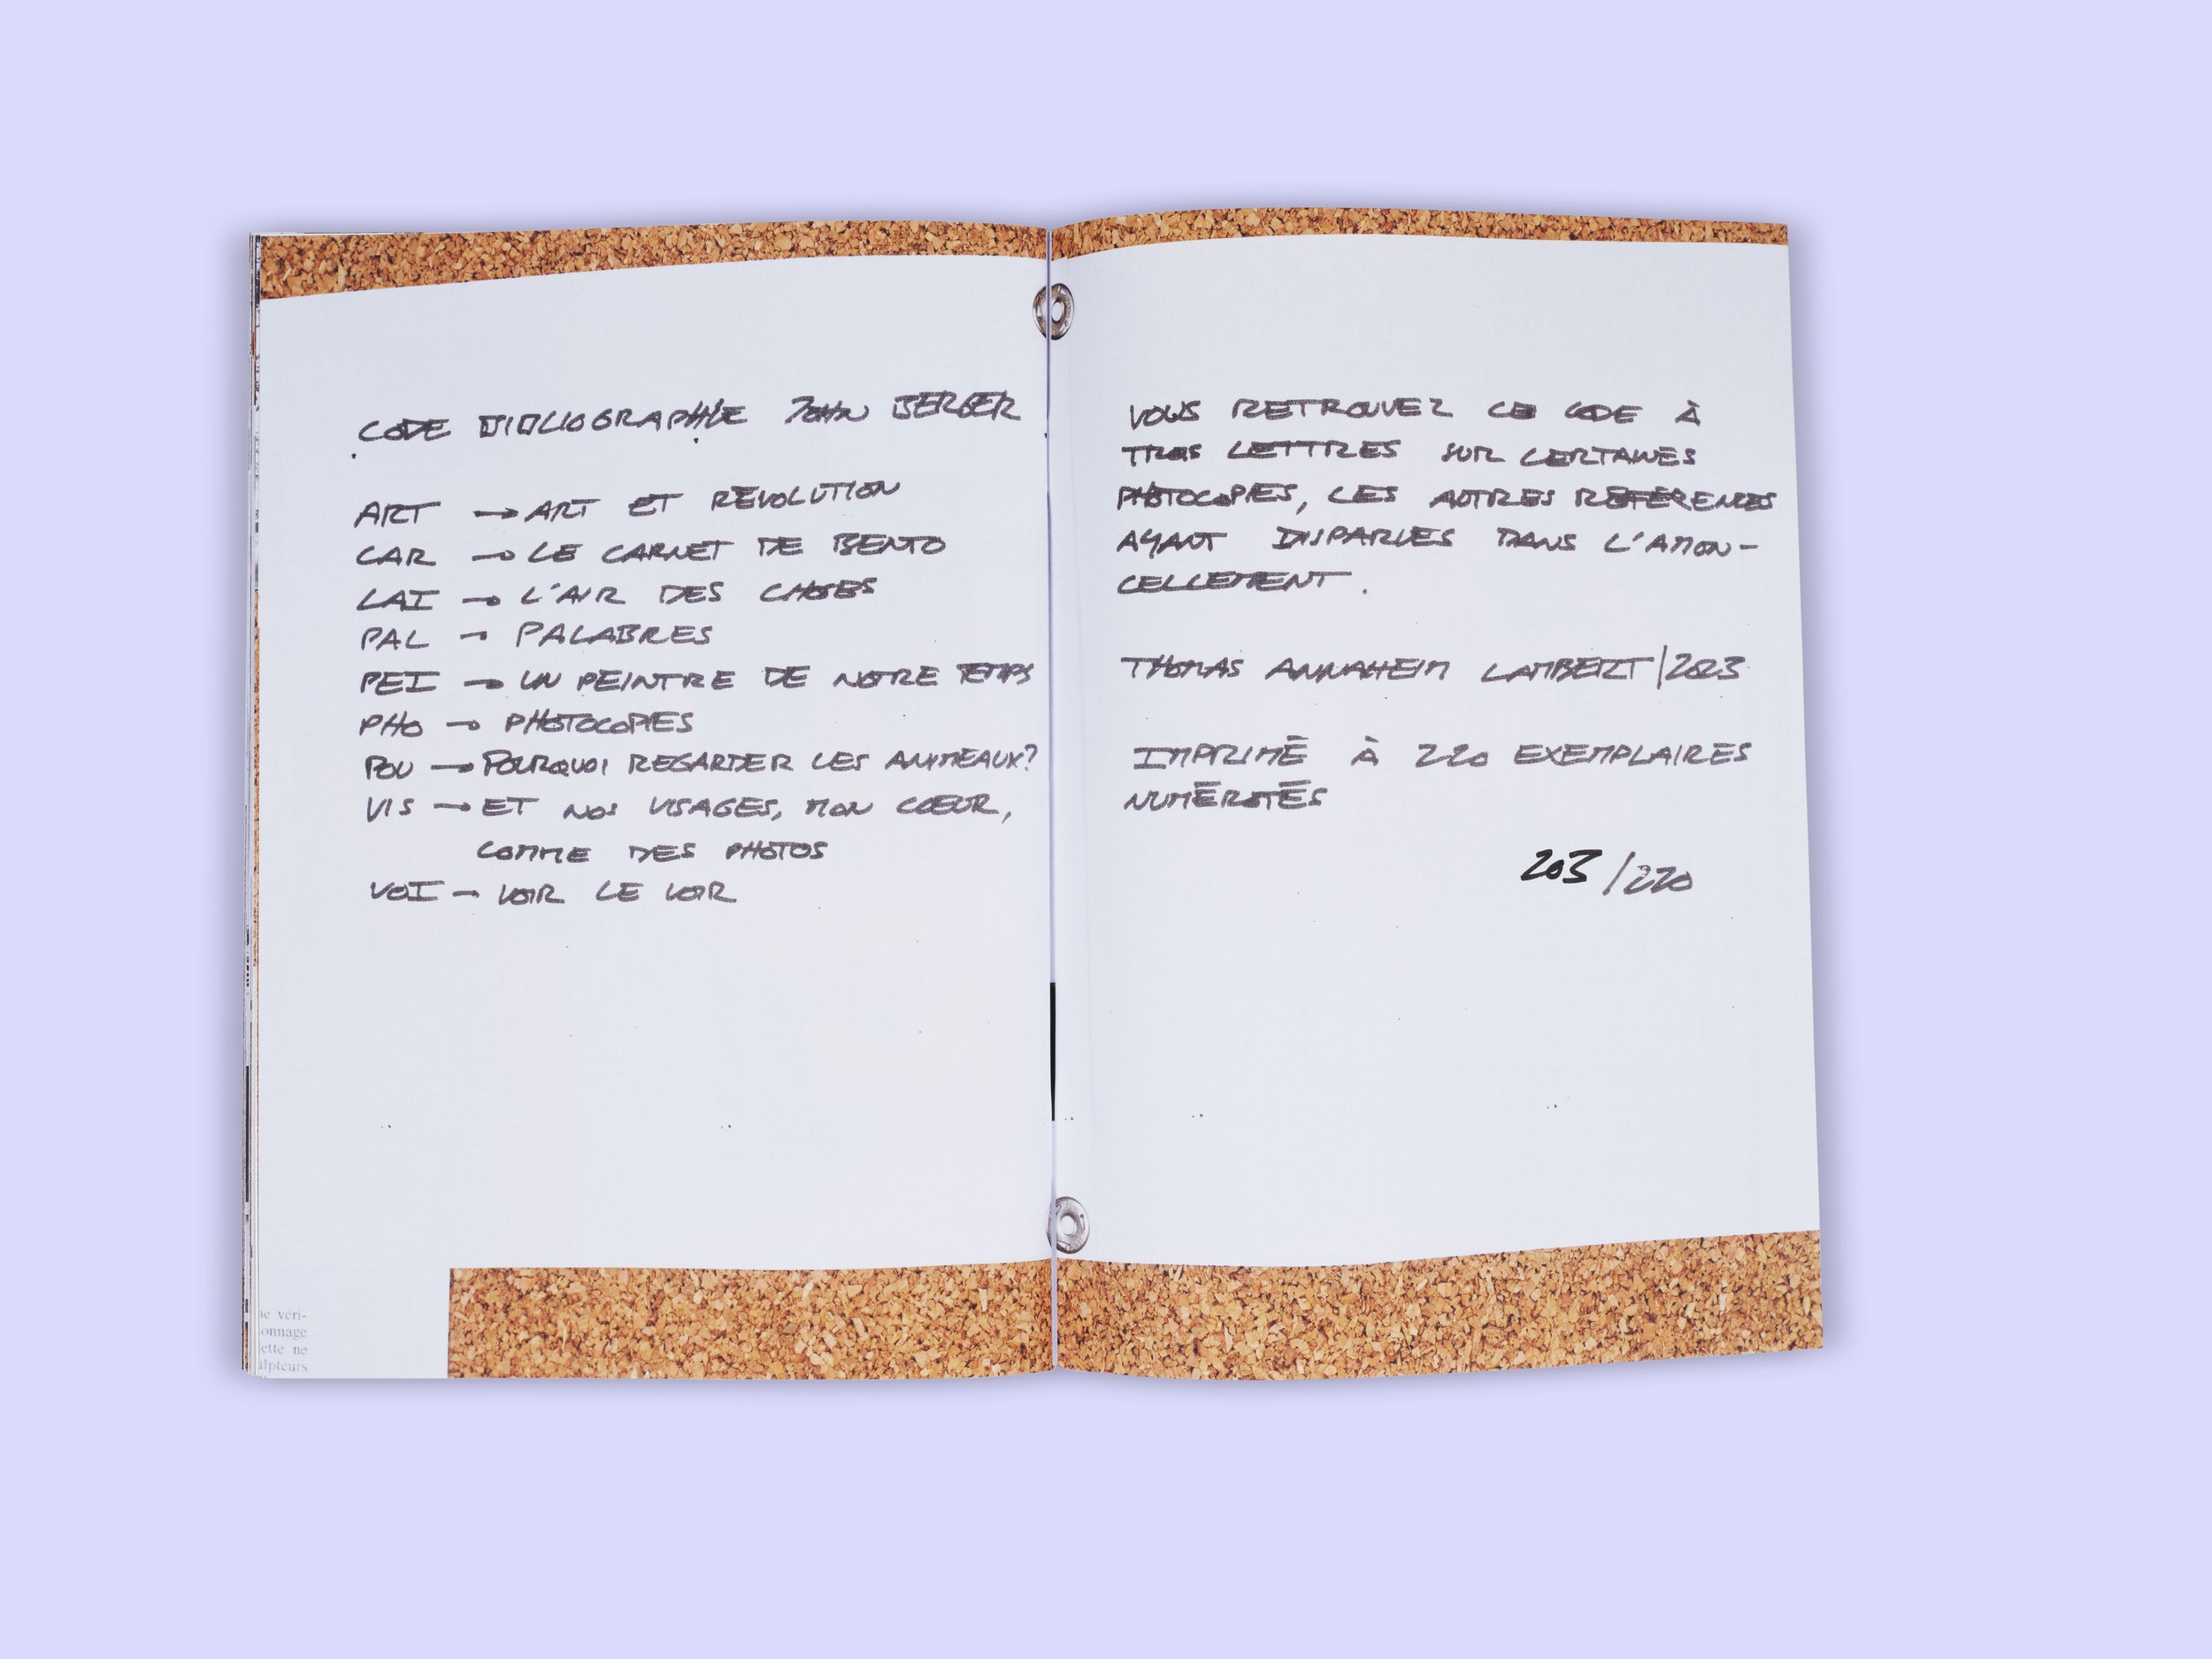 CODE BIBLIOGRAPHIE JOHN BERGER
ART → ART ET RÉVOLUTION
CAR → LE CARNET DE BENTO
LAI → L'AIR DES CHOSES
PAL → PALABRES
PEI → UN PEINTRE DE NOTRE TEMPS
PHO → PHOTOCOPIES
POU → POURQUOI REGARDER LES ANIMEAUX?
VIS → ET NOS VISAGES, MON CŒUR,
COMME DES PHOTOS
VOI → VOIR LE VOIR
ne véri-
onnage
ette ne
ulpteurs
VOUS RETROUVEZ CE CODE À
TROIS LETTRES SUR CERTAINES
PHOTOCOPIES, LES AUTRES RÉFÉRENCES
AYANT DISPARUES DANS L'AMON-
CELLEMENT.
THOMAS ANNAHEIM LAMBERT | 2023
IMPRIMÉ À 220 EXEMPLAIRES
NUMÉROTÉS
203/220